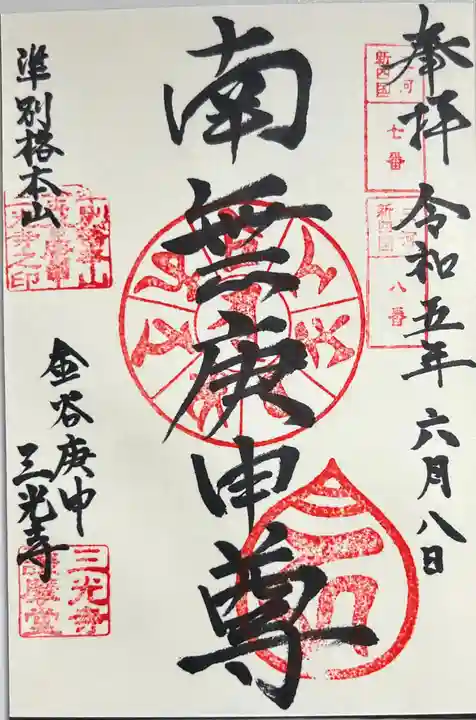 奉拝 令和五年 六月八日
三河
新四国
七番
三河
新四国
八番
南無庚申尊
準別格本山
金谷庚申
三光寺
三光寺
護摩堂